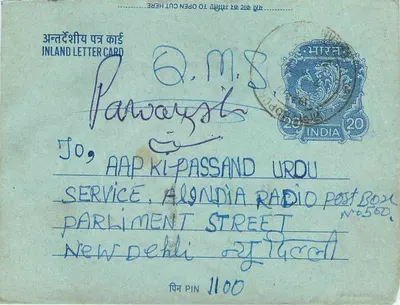 यहां काट कर लिफाफे TO OPEN CUT HERE
अन्तर्देशीय पत्र कार्ड
INLAND LETTER CARD
भारत
20 20
INDIA
Q.M.S.
To,
AAP KI-PASSAND URDU
SERVICE, All INDIA RADIO Post Box
No 500.
PARLIMENT STREET
New Dehli न्यु दिल्ली
पिन PIN 1100